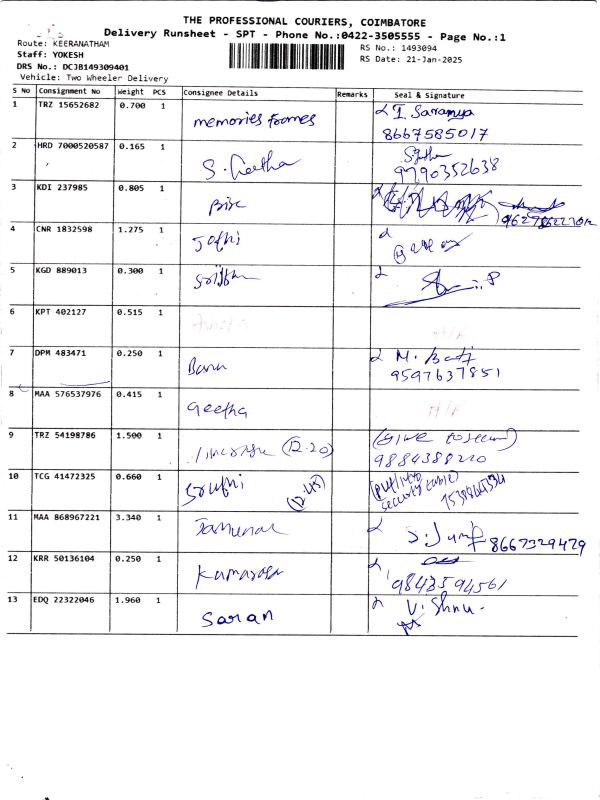 THE PROFESSIONAL COURIERS, COIMBATORE
Delivery Runsheet - SPT - Phone No.:0422-3505555 - Page No.:1
Route: KEERANATHAM
Staff: YOKESH
DRS No.: DCJB149309401
Vehicle: Two Wheeler Delivery
RS No.: 1493094
RS Date: 21-Jan-2025
S No Consignment No Weight PCS Consignee Details Remarks Seal & Signature
1 TRZ 15652682 0.700 1 memories frames I. Saranya
8667585017
2 HRD 7000520587 0.165 1 S. Geetha
9790352638
3 KDI 237985 0.805 1
4 CNR 1832598 1.275 1
5 KGD 889013 0.300 1
6 KPT 402127 0.515 1
7 DPM 483471 0.250 1 Banu
9597637851
8 MAA 576537976 0.415 1 Geetha
9 TRZ 54198786 1.500 1 (12.20) (Give to secur)
9884388220
10 TCG 41472325 0.660 1 (12.48) security table)
11 MAA 868967221 3.340 1
8667329479
12 KRR 50136104 0.250 1
9843594561
13 EDQ 22322046 1.960 1 Saran Vishnu